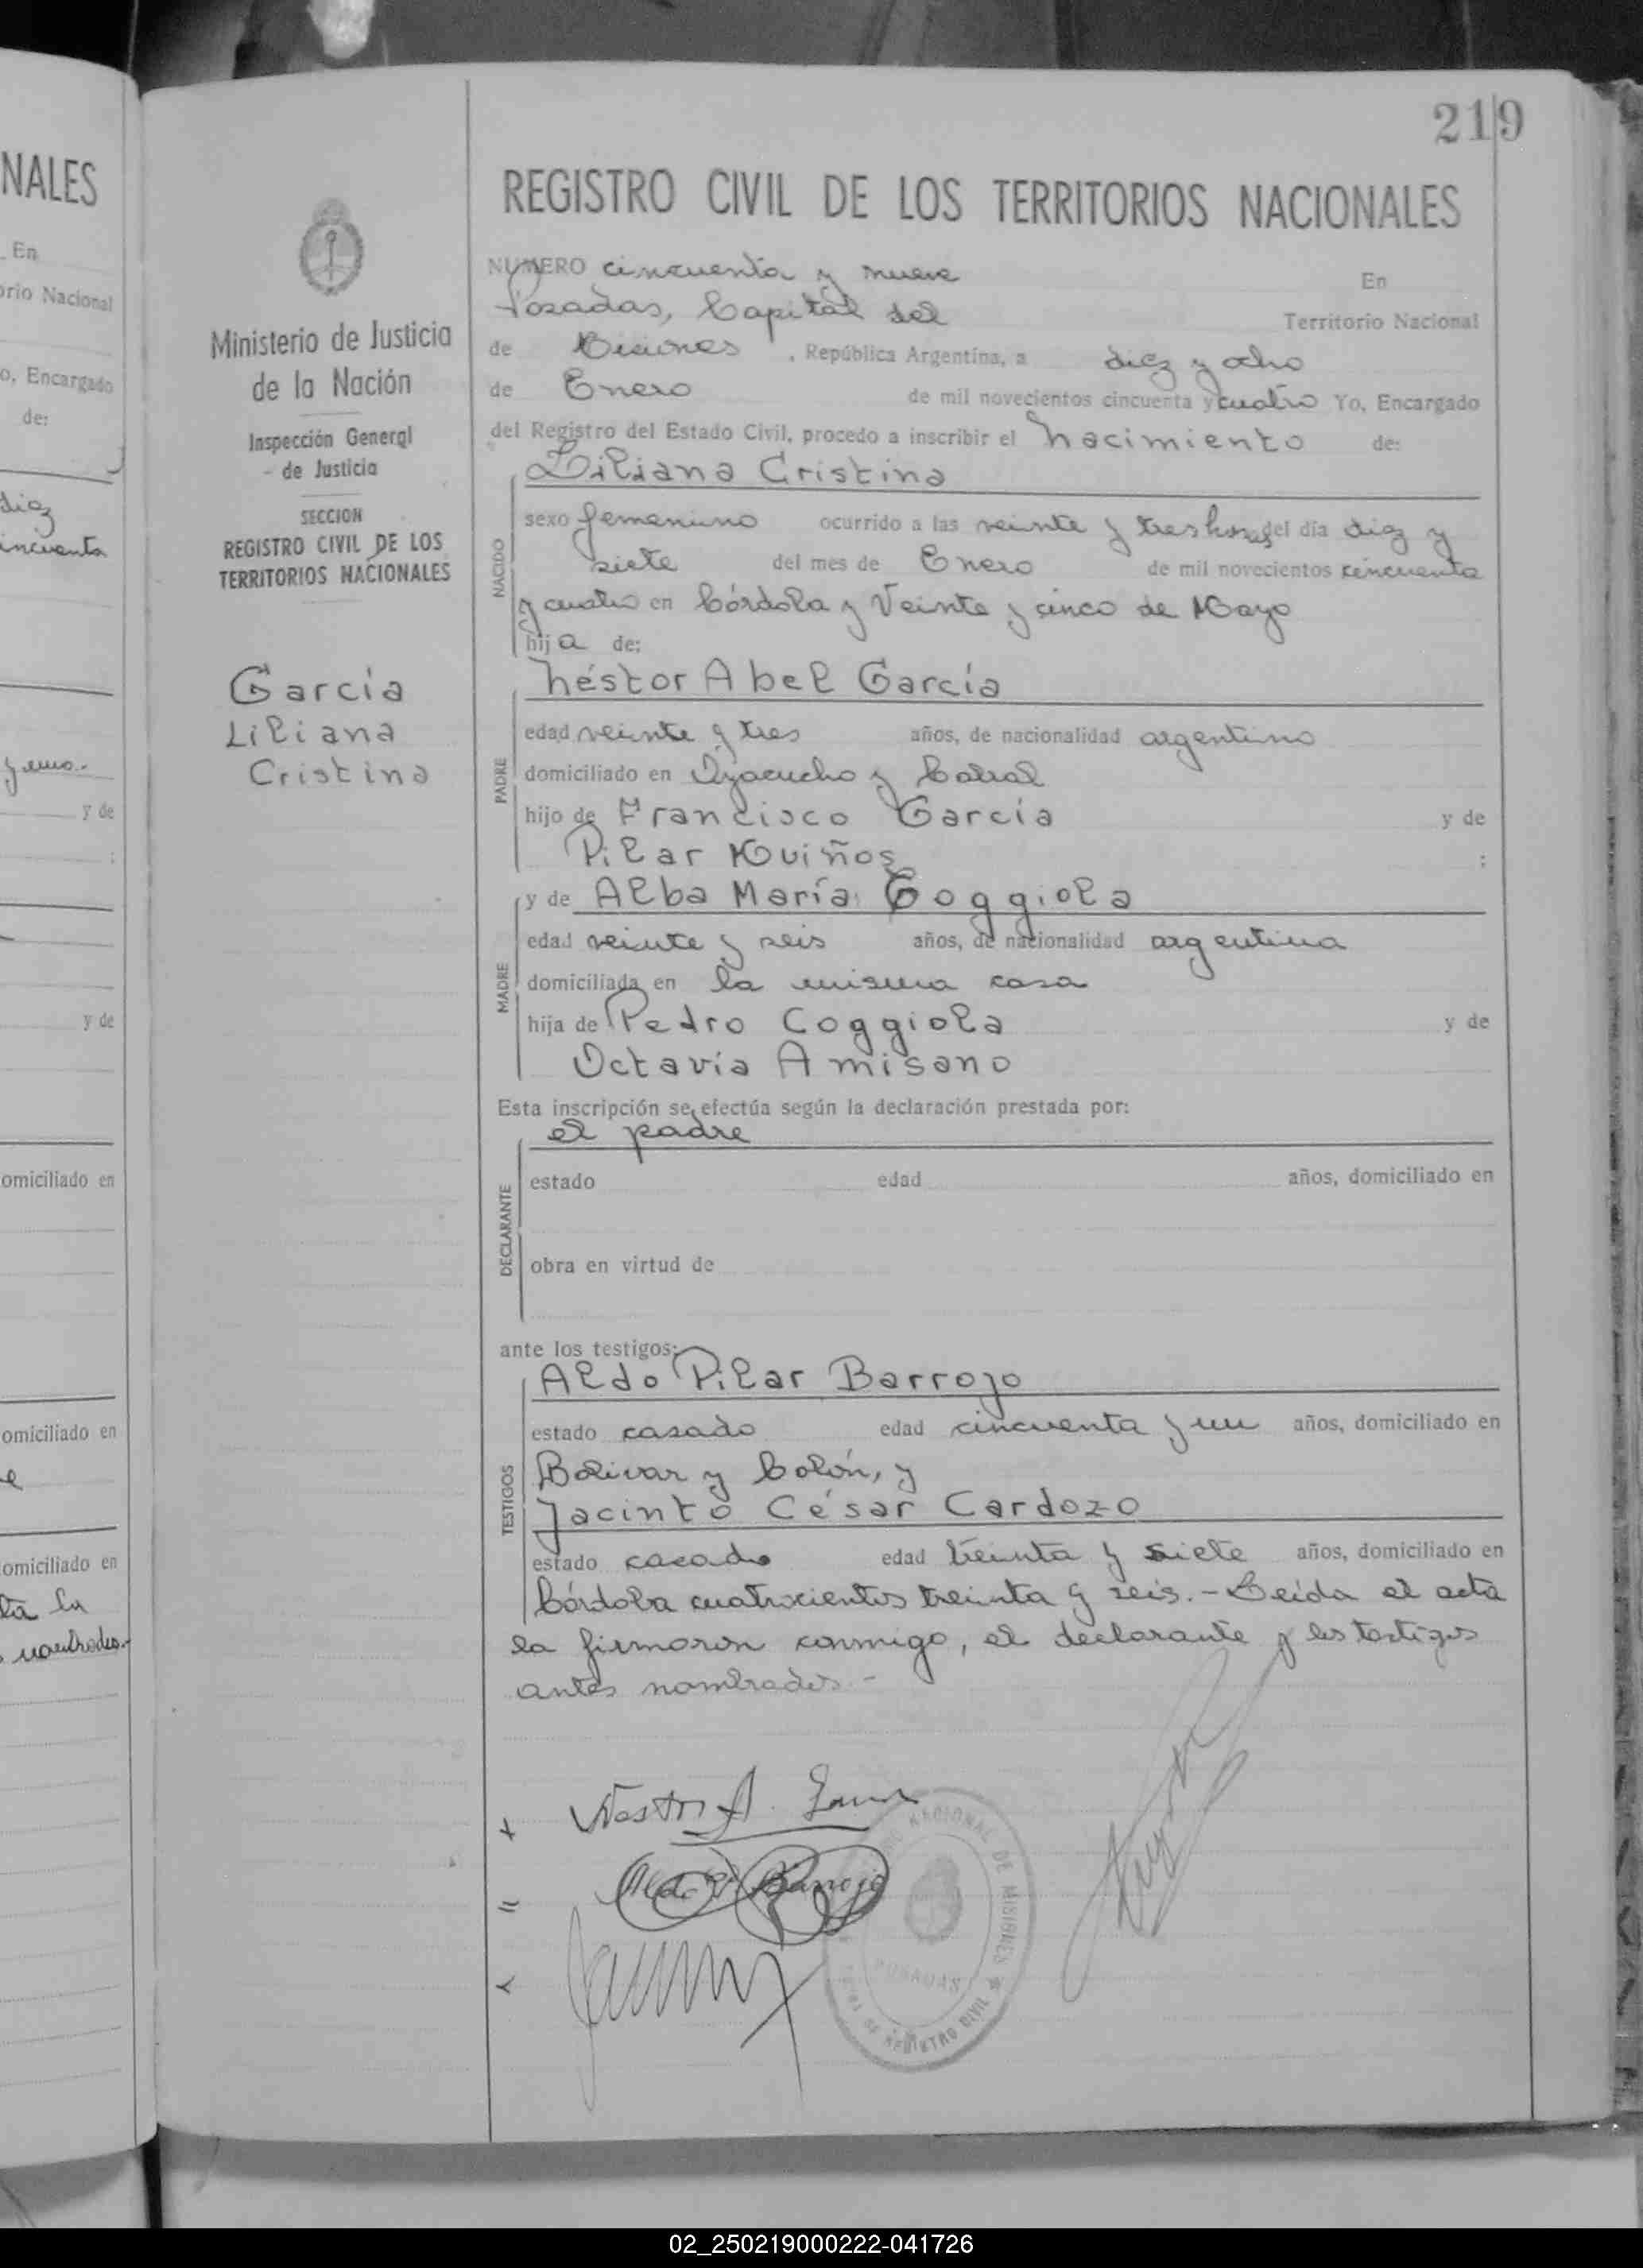 219
NALES
En
orio Nacional
o, Encargado
de:
diez
incuenta
y uno.-
y de
:
y de
omiciliado en
omiciliado en
e
omiciliado en
ta la
nombrados.-
Ministerio de Justicia
de la Nación
Inspección General
- de Justicia
SECCION
REGISTRO CIVIL DE LOS
TERRITORIOS NACIONALES
García
Liliana
Cristina
REGISTRO CIVIL DE LOS TERRITORIOS NACIONALES
NUMERO cincuenta y nueve En
Posadas, Capital del Territorio Nacional
de Misiones , República Argentina, a diez y ocho
de Enero de mil novecientos cincuenta y cuatro Yo, Encargado
del Registro del Estado Civil, procedo a inscribir el nacimiento de:
Liliana Cristina
NACIDO
sexo femenino ocurrido a las veinte y tres horas del día diez y
siete del mes de Enero de mil novecientos cincuenta
y cuatro en Córdoba y Veinte y cinco de Mayo
hija de:
Néstor Abel García
PADRE
edad veinte y tres años, de nacionalidad argentino
domiciliado en Ayacucho y Cabral
hijo de Francisco García y de
Pilar Muiños :
y de Alba María Coggiola
MADRE
edad veinte y seis años, de nacionalidad argentina
domiciliada en la misma casa
hija de Pedro Coggiola y de
Octavia Amisano
Esta inscripción se efectúa según la declaración prestada por:
el padre
DECLARANTE
estado edad años, domiciliado en
obra en virtud de
ante los testigos:
Aldo Pilar Barrojo
TESTIGOS
estado casado edad cincuenta y un años, domiciliado en
Bolivar y Colón, y
Jacinto César Cardozo
estado casado edad treinta y siete años, domiciliado en
Córdoba cuatrocientos treinta y seis.- Leída el acta
la firmaron conmigo, el declarante y los testigos
antes nombrados.-
Nestor A.
Aldo P. Barrojo
REGIONAL DE MISIONES
POSADAS
DE REGISTRO CIVIL
02_250219000222-041726